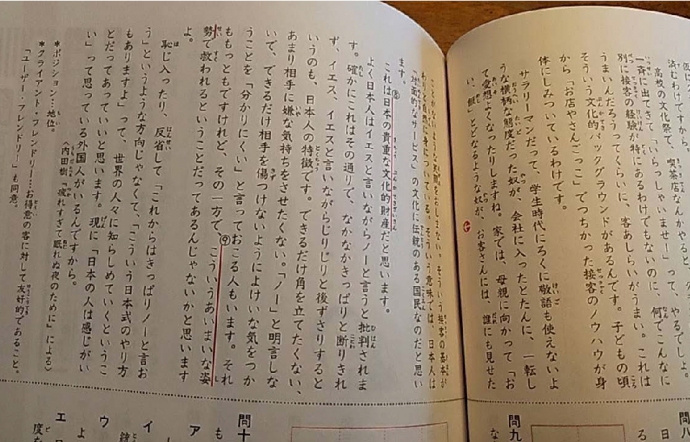 済むわけですから。
高校の文化祭で、喫茶店なんかやると、
一斉に出てきて「いらっしゃいませ」って、やるでしょ。
別に接客の経験が特にあるわけでもないのに、何でこんなに
うまいんだろうってくらいに、客あしらいがうまい。これは
そういう文化的バックグラウンドがあるんです。子どもの頃
から「お店やさんごっこ」でつちかった接客のノウハウが身
体にしみついているわけです。
サラリーマンだって、学生時代にろくに敬語も使えないよ
うな横柄な態度だった奴が、会社に入ったとたんに、一転し
て愛想よくなったりしますね。家では、母親に向かって「お
い、飯」とどなるような奴が、お客さんには、誰にも見せた
的なサービス」の文化に伝統のある国民なのだと思い
ます。
これは日本の貴重な文化的財産だと思います。
よく日本人はイエスと言いながらノーと言うと批判されま
す。確かにこれはその通りで、なかなかきっぱりと断りきれ
ず、イエス、イエスと言いながらじりじりと後ずさりすると
いうのも、日本人の特徴です。できるだけ角を立てたくない、
あまり相手に嫌な気持ちをさせたくない。「ノー」と明言しな
いで、できるだけ相手を傷つけないようによけいな気をつか
うことを「分かりにくい」と言っておこる人もいます。それ
ももっともですけれど、その一方で、⑨こういうあいまいな姿
勢で救われるということだってあるんじゃないかと思います
恥じ入ったり、反省して「これからはきっぱりノーと言お
う」というような方向じゃなくて、「こういう日本式のやり方
もありますよ」って、世界の人々に知らしめていくというこ
とだってあっていいと思います。現に「日本の人は感じがい
い」って思っている外国人がいるんですから。
(内田樹『疲れすぎて眠れぬ夜のために』による)
*ポジション…地位。
*クライアント・フレンドリー…お得意の客に対して友好的であること。
「ユーザー・フレンドリー」も同意。
問八
問九
問十
ア
イ
ウ
エ